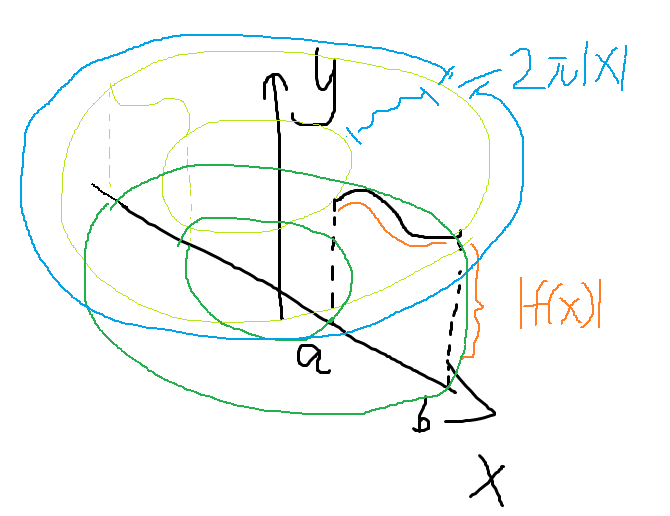 y
2π|x|
|f(x)|
a
b
X